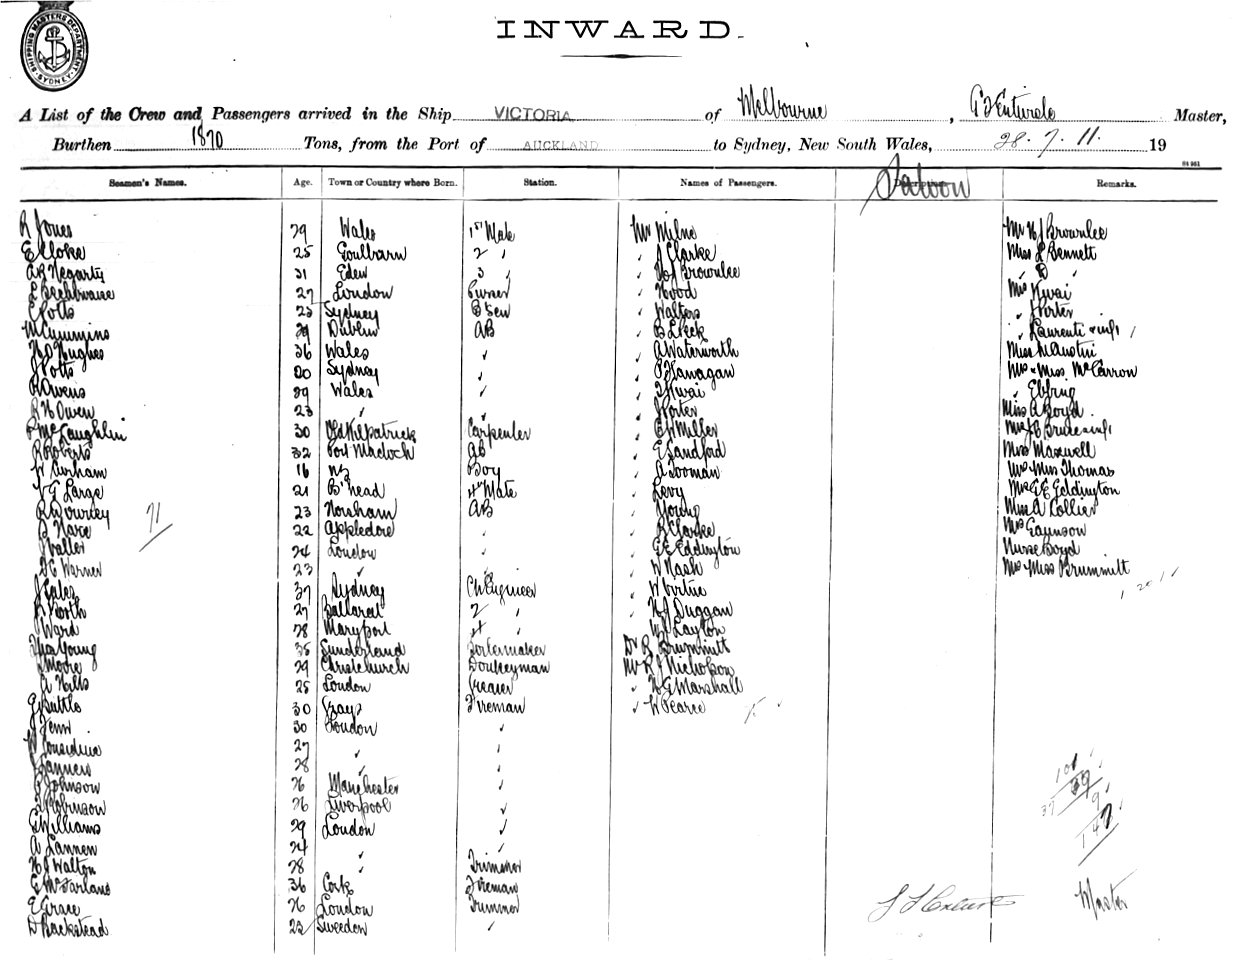 SHIPPING MASTERS DEPARTMENT
SYDNEY
INWARD.
A List of the Crew and Passengers arrived in the Ship VICTORIA of Melbourne, Master,
Burthen 1870 Tons, from the Port of AUCKLAND to Sydney, New South Wales, 28.7.11. 19
Seamen's Names. Age. Town or Country where Born. Station. Names of Passengers. Saloon Remarks.
R Jones 29 Wales 1st Mate Mr Milne Mr H J Brownlee
E Cloke 25 Goulburn 2 " " J Clarke Miss L Bennett
31 Eden 3 " " H J Brownlee " D "
27 London Purser " Hood Mrs Kwai
C Potts 23 Sydney " Walters " Porter
M Cummins 29 Dublin AB " B Leck " Laurenti & inft
H O Hughes 36 Wales " " A Waterworth Miss M Austin
J Potts 20 Sydney " " P Flanagan Mrs & Miss McCarron
R Owens 29 Wales " " J Kwai "
R H Owen 23 " " " Porter Miss A Boyd
P McLaughlin 30 Old Kilpatrick Carpenter " E H Miller Mrs J C Bruce & inft
R Roberts 32 Port Madoch AB " E Sandford Miss Maxwell
W Durham 16 NZ Boy " A Tooman Mrs Miss Thomas
V G Large 21 B'head 4th Mate " Levy Mrs G E Eddington
23 Horsham AB " Young Miss A Collier
71
B Hare 22 Appledore " " R Clarke Mrs Gaunson
24 London " " G E Eddington Nurse Boyd
D C Warner 23 " " " W Nash Mrs Miss Brummitt
J Eales 37 Sydney Ch Engineer " W Virtue
R North 27 Ballarat 2 " " H J Duggan
J Ward 28 Maryport " " W J Layton
Young 35 Sunderland Boilermaker Dr R Brummitt
J Moore 29 Christchurch Donkeyman Mr R J Nicholson
A Hills 25 London Greaser " H G Marshall
G Suttle 30 Grays Fireman " W Pearce
J Fenn 30 London "
W Considine 27 " "
28 " "
P Johnson 26 Manchester "
Robinson 26 Liverpool "
G Williams 29 London "
A Lannen 24 " "
H J Walton 28 " Trimmer
E McFarland 36 Cork Fireman
E Grace 26 London Trimmer
D Backstead 22 Sweden "
9
142
Master